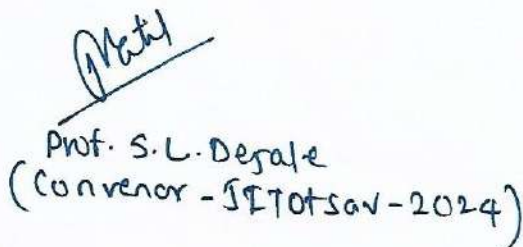 Prof. S.L. Desale
(Convenor - IITOtsav-2024)